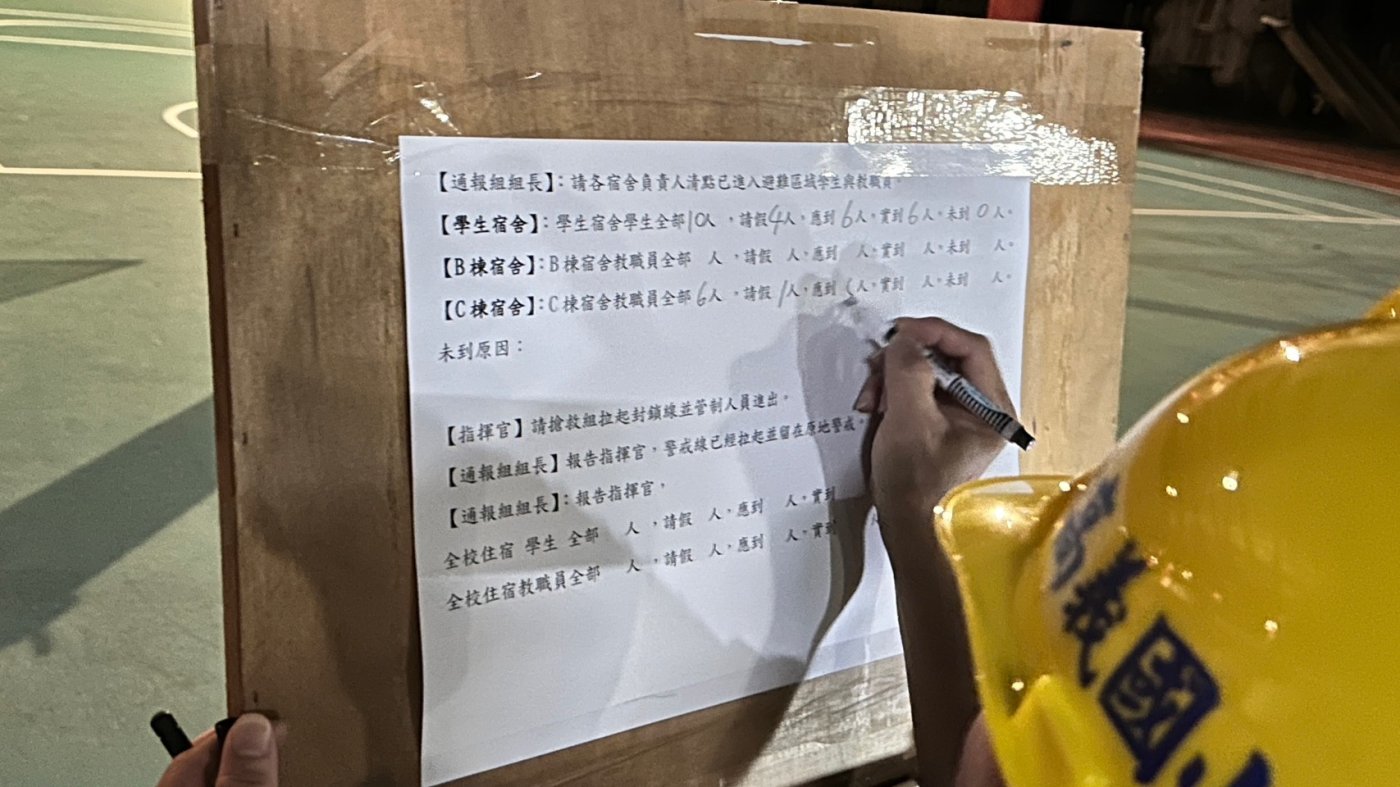 【通報組組長】：請各宿舍負責人清點已進入避難區域學生與教職員。
【學生宿舍】：學生宿舍學生全部10人，請假4人，應到6人，實到6人，未到0人。
【B棟宿舍】：B棟宿舍教職員全部 人，請假 人，應到 人，實到 人，未到 人。
【C棟宿舍】：C棟宿舍教職員全部6人，請假1人，應到 人，實到 人，未到 人。
未到原因：
【指揮官】請搶救組拉起封鎖線並管制人員進出。
【通報組組長】報告指揮官，警戒線已經拉起並留在原地警戒。
【通報組組長】：報告指揮官，
全校住宿 學生 全部 人，請假 人，應到 人，實到 人
全校住宿教職員全部 人，請假 人，應到 人，實到
義國